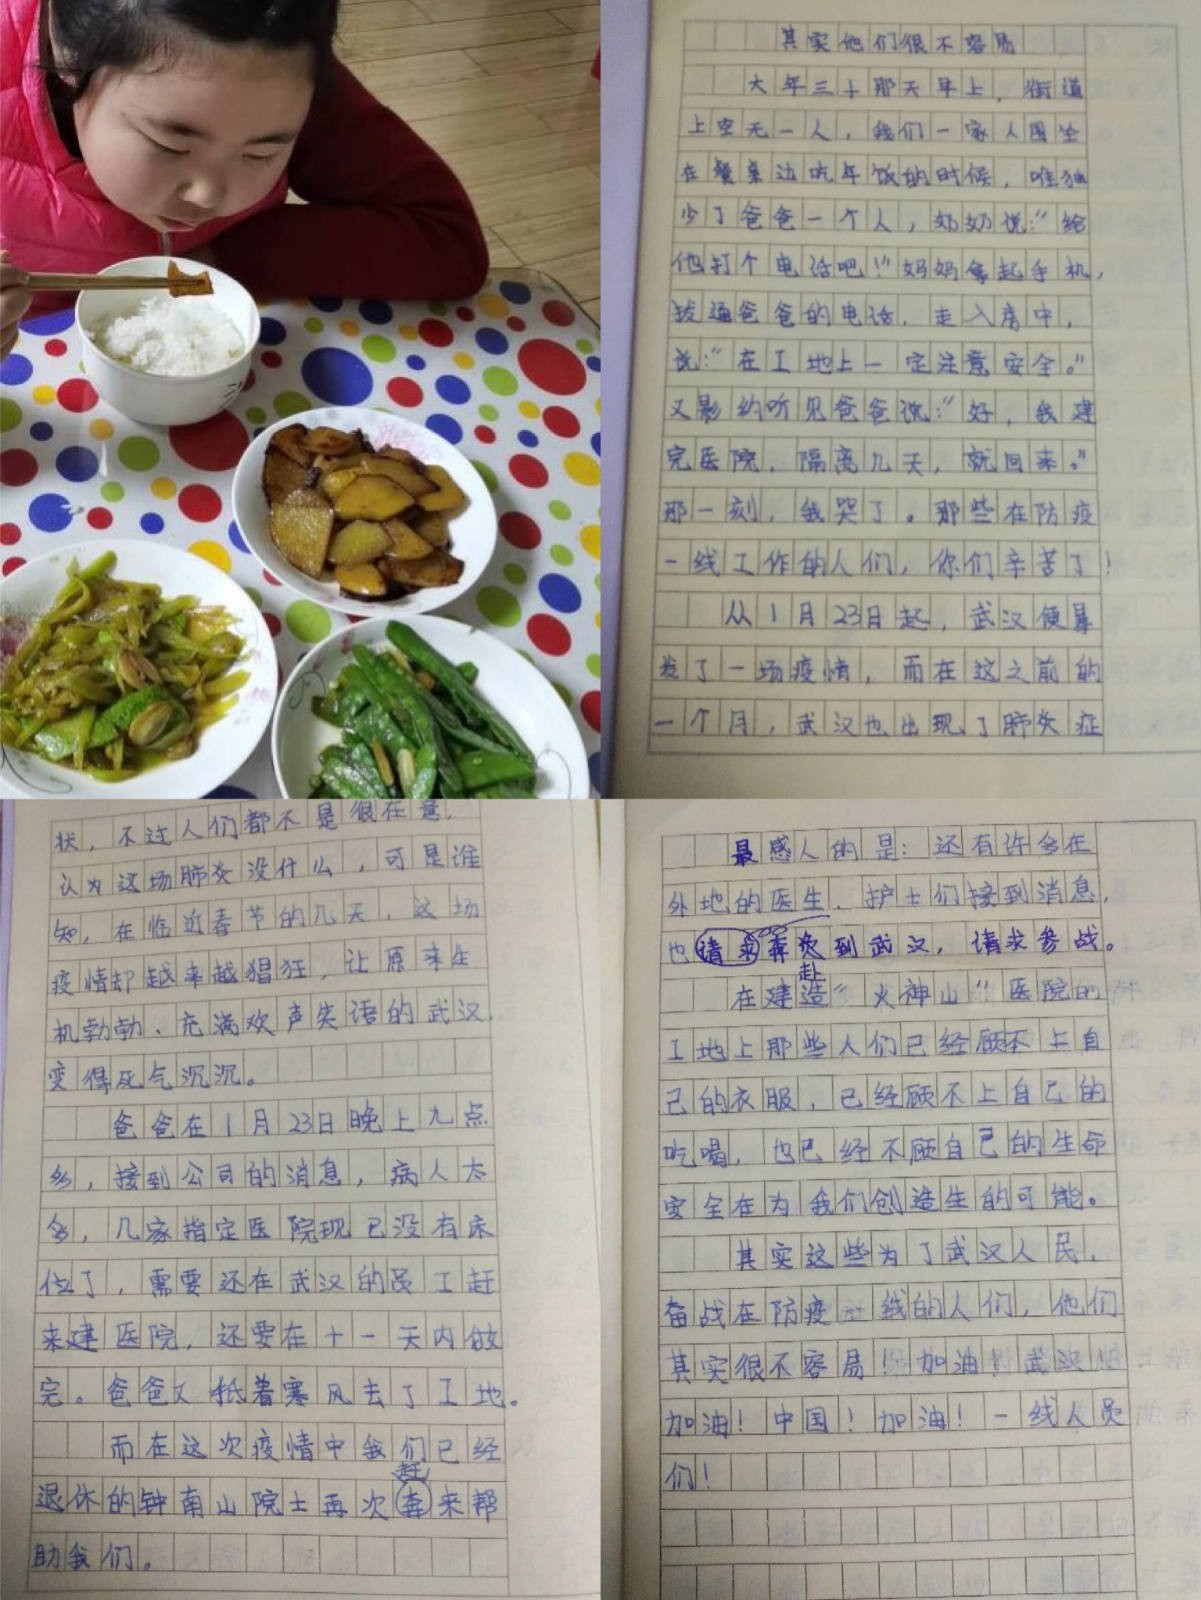 其实他们很不容易
大年三十那天早上，街道
上空无一人，我们一家人围坐
在餐桌边吃年饭的时候，唯独
少了爸爸一个人，奶奶说：“给
他打个电话吧！”妈妈拿起手机，
拔通爸爸的电话，走入房中，
说：“在工地上一定注意安全。”
又影约听见爸爸说：“好，我建
完医院，隔离几天，就回来。”
那一刻，我哭了。那些在防疫
一线工作的人们，你们辛苦了！
从1月23日起，武汉便暴
发了一场疫情，而在这之前的
一个月，武汉也出现了肺炎症
状，不过人们都不是很在意，
认为这场肺炎没什么，可是谁
知，在临近春节的几天，这场
疫情却越来越猖狂，让原来生
机勃勃、充满欢声笑语的武汉
变得死气沉沉。
爸爸在1月23日晚上九点
多，接到公司的消息，病人太
多，几家指定医院现已没有床
位了，需要还在武汉的员工赶
来建医院，还要在十一天内做
完。爸爸又抵着寒风去了工地。
而在这次疫情中我们已经
赶
退休的钟南山院士再次奔来帮
助我们。
最感人的是：还有许多在
外地的医生、护士们接到消息，
也请求奔赴到武汉，请求参战。
赴
在建造“火神山”医院的
工地上那些人们已经顾不上自
己的衣服，已经顾不上自己的
吃喝，也已经不顾自己的生命
安全在为我们创造生的可能。
其实这些为了武汉人民，
奋战在防疫一线的人们，他们
其实很不容易！加油！武汉！
加油！中国！加油！一线人员
们！